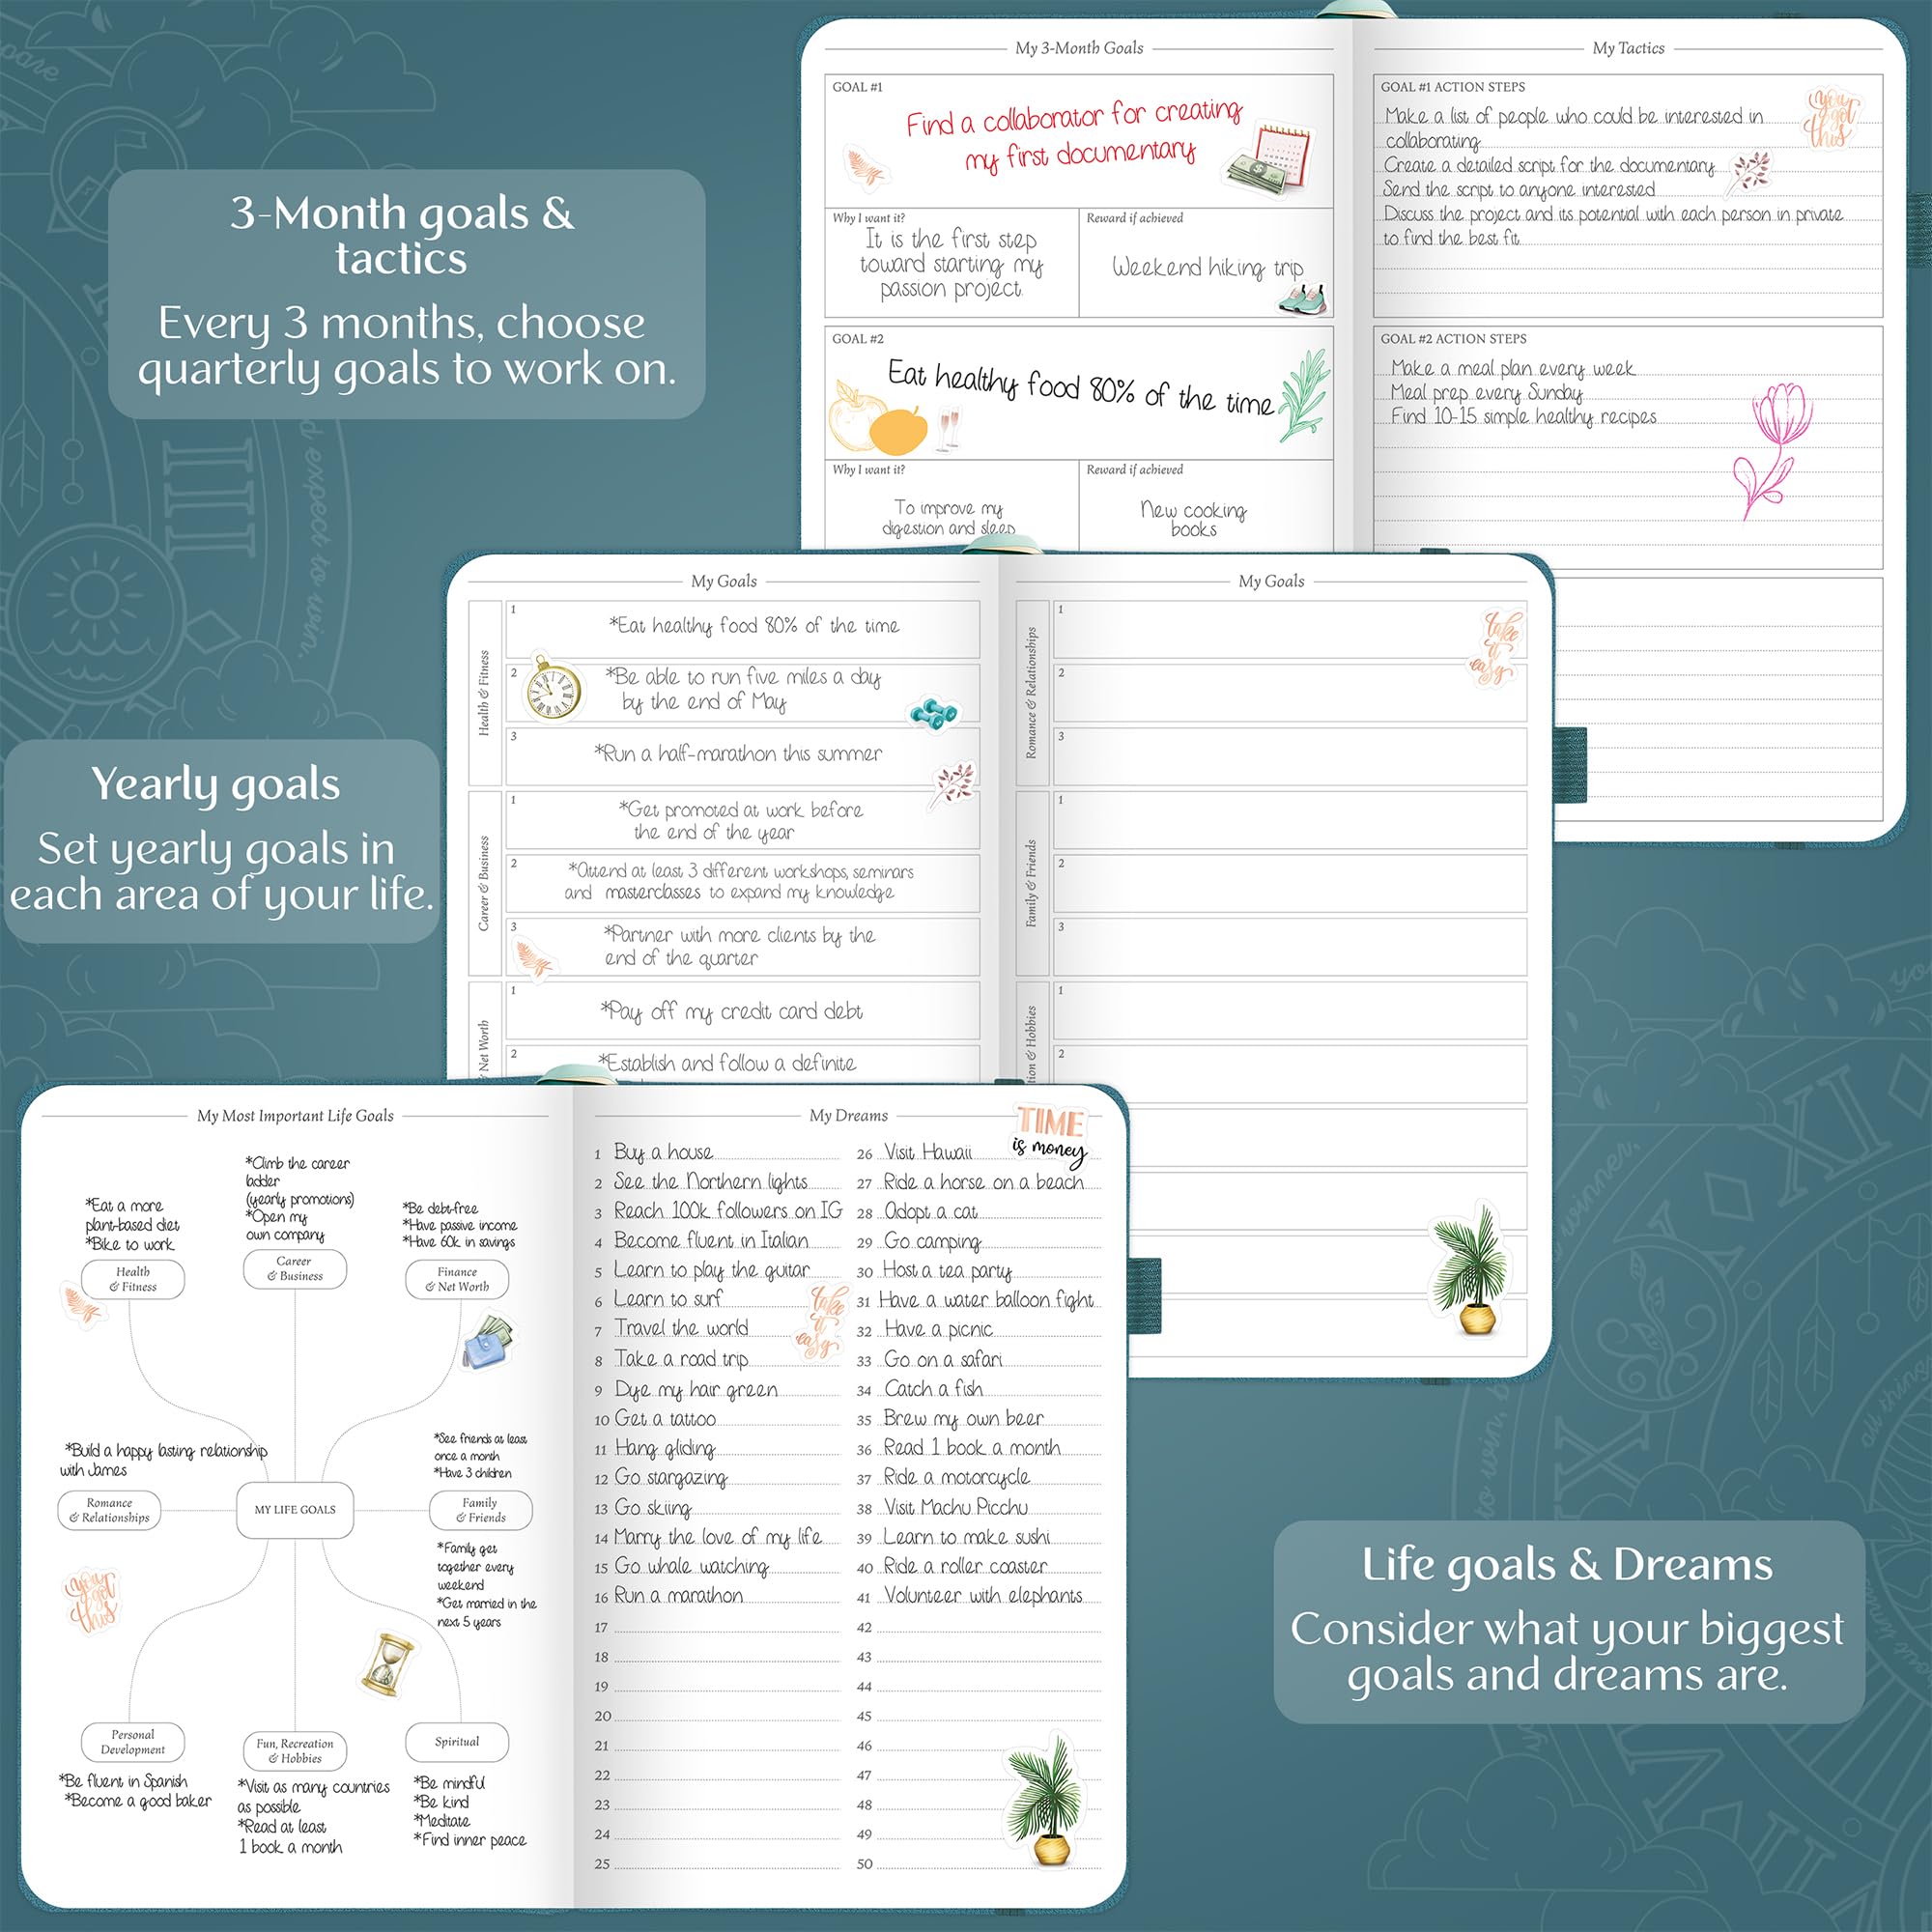 3-Month goals &
tactics
Every 3 months, choose
quarterly goals to work on.
My 3-Month Goals
GOAL #1
Find a collaborator for creating
my first documentary
Why I want it?
It is the first step
toward starting my
passion project.
Reward if achieved
Weekend hiking trip
GOAL #2
Eat healthy food 80% of the time
Why I want it?
To improve my
digestion and sleep
Reward if achieved
New cooking
books
My Tactics
GOAL #1 ACTION STEPS
you
got
this
Make a list of people who could be interested in
collaborating
Create a detailed script for the documentary
Send the script to anyone interested
Discuss the project and its potential with each person in private
to find the best fit
GOAL #2 ACTION STEPS
Make a meal plan every week
Meal prep every Sunday
Find 10-15 simple healthy recipes
Yearly goals
Set yearly goals in
each area of your life.
My Goals
Health & Fitness
1
*Eat healthy food 80% of the time
2
*Be able to run five miles a day
by the end of May
3
*Run a half-marathon this summer
Career & Business
1
*Get promoted at work before
the end of the year
2
*Attend at least 3 different workshops, seminars
and masterclasses to expand my knowledge
3
*Partner with more clients by the
end of the quarter
Net Worth
1
*Pay off my credit card debt
2
*Establish and follow a definite
My Goals
Romance & Relationships
1
take
it
easy
2
3
Family & Friends
1
2
3
& Hobbies
1
2
My Most Important Life Goals
*Eat a more
plant-based diet
*Bike to work
Health
& Fitness
*Climb the career
ladder
(yearly promotions)
*Open my
own company
Career
& Business
*Be debt-free
*Have passive income
*Have 60k in savings
Finance
& Net Worth
*Build a happy lasting relationship
with James
Romance
& Relationships
MY LIFE GOALS
*See friends at least
once a month
*Have 3 children
Family
& Friends
*Family get
together every
weekend
*Get married in the
next 5 years
you
got
this
Personal
Development
*Be fluent in Spanish
*Become a good baker
Fun, Recreation
& Hobbies
*Visit as many countries
as possible
*Read at least
1 book a month
Spiritual
*Be mindful
*Be kind
*Meditate
*Find inner peace
My Dreams
TIME
is money
1 Buy a house
2 See the Northern lights
3 Reach 100k followers on IG
4 Become fluent in Italian
5 Learn to play the guitar
6 Learn to surf
7 Travel the world
8 Take a road trip
take
it
easy
9 Dye my hair green
10 Get a tattoo
11 Hang gliding
12 Go stargazing
13 Go skiing
14 Marry the love of my life
15 Go whale watching
16 Run a marathon
17
18
19
20
21
22
23
24
25
26 Visit Hawaii
27 Ride a horse on a beach
28 Adopt a cat
29 Go camping
30 Host a tea party
31 Have a water balloon fight
32 Have a picnic
33 Go on a safari
34 Catch a fish
35 Brew my own beer
36 Read 1 book a month
37 Ride a motorcycle
38 Visit Machu Picchu
39 Learn to make sushi
40 Ride a roller coaster
41 Volunteer with elephants
42
43
44
45
46
47
48
49
50
Life goals & Dreams
Consider what your biggest
goals and dreams are.